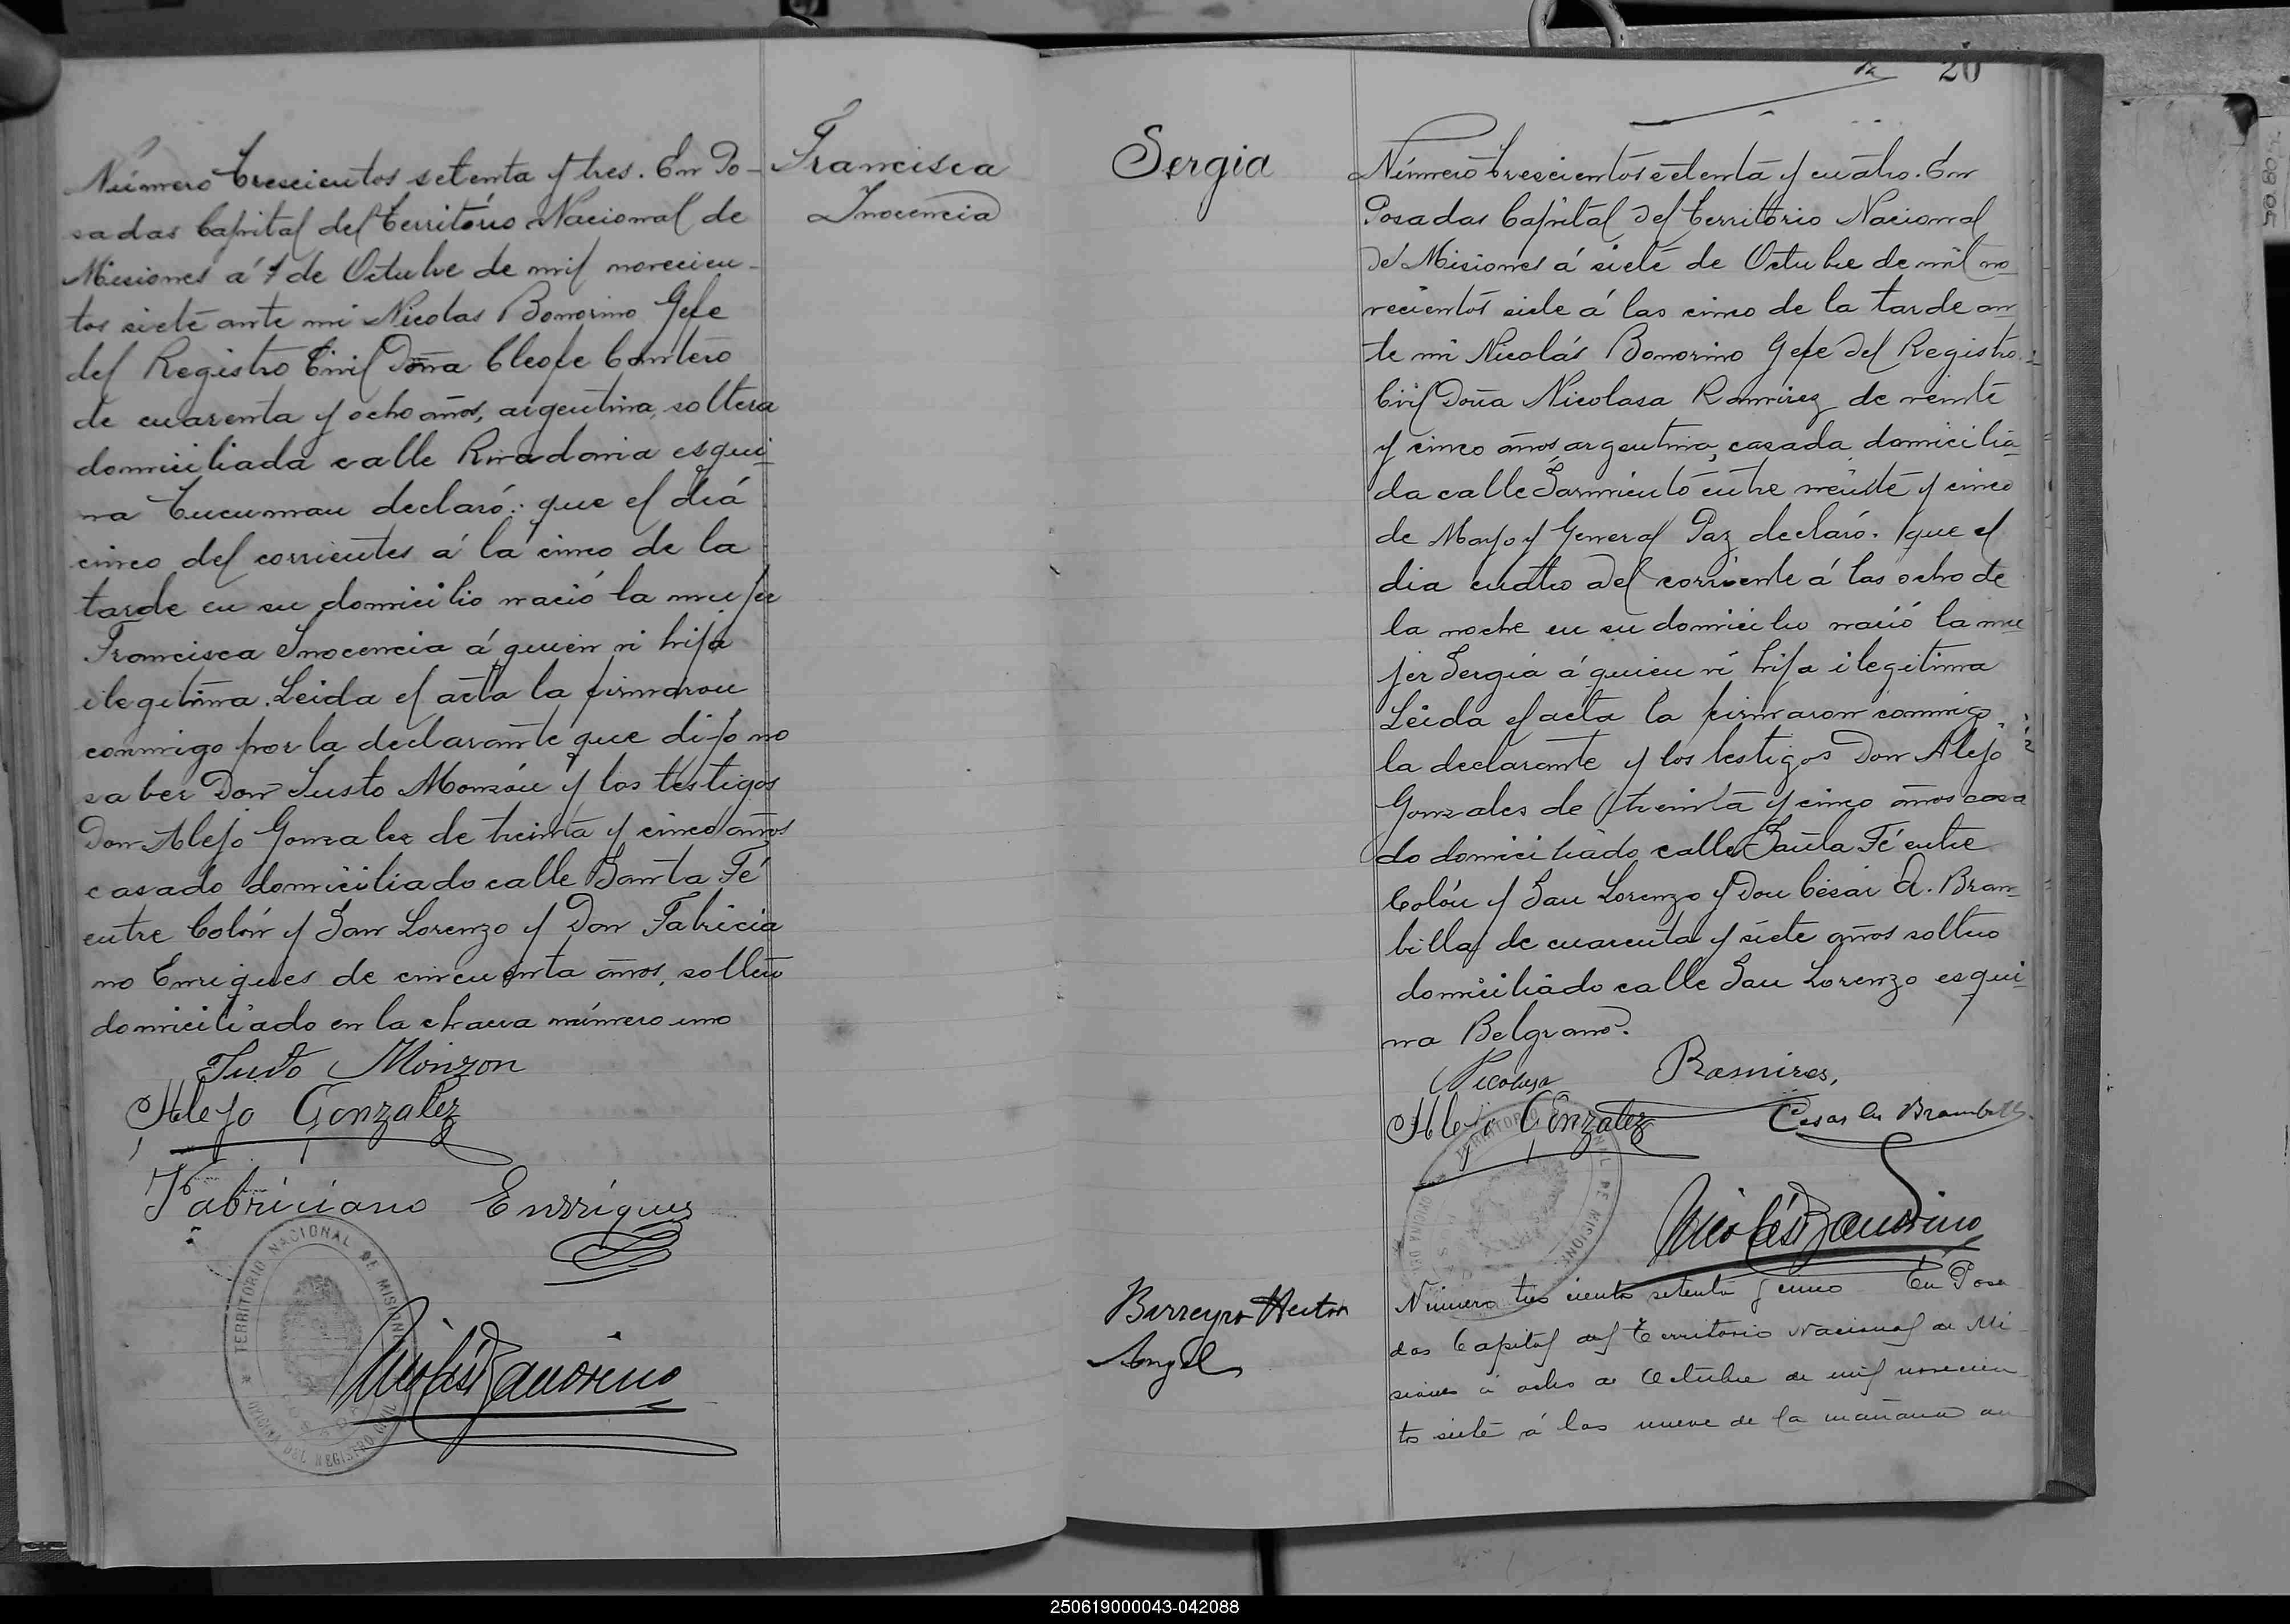 Francisca
Inocencia
Número trescientos setenta y tres. En Po-
sadas Capital del Territorio Nacional de
Misiones á 7 de Octubre de mil novecien-
tos siete ante mi Nicolas Bonorino Gefe
del Registro Civil Doña Cleofe Cantero
de cuarenta y ocho años, argentina, soltera
domiciliada calle Rivadavia esqui-
na Tucuman declaró: que el diá
cinco del corrientes á la cinco de la
tarde en su domicilio nació la mujer
Francisca Inocencia á quien vi hija
ilegitima. Leida el acta la firmaron
conmigo por la declarante que dijo no
saber Don Justo Monzón y los testigos
Don Alejo Gonzalez de treinta y cinco años
casado domiciliado calle Santa Fé
entre Colón y San Lorenzo y Don Fabricia
no Enriques de cincuenta años, soltero
domiciliado en la chacra número uno
Justo Monzon
Alejo Gonzalez
Fabriciano Enrriques
TERRITORIO NACIONAL DE MISIONES
OFICINA DEL REGISTRO CIVIL
Nicolás Bonorino
20
Sergia
Número trescientos setenta y cuatro. En
Posadas Capital del Territorio Nacional
de Misiones á siete de Octubre de mil no
vecientos siete á las cinco de la tarde an
te mi Nicolás Bonorino Gefe del Registro
Civil Doña Nicolasa Ramirez de veinte
y cinco años argentina, casada domicilia
da calle Sarmiento entre veinte y cinco
de Mayo y General Paz declaró. que el
dia cuatro del corriente á las ocho de
la noche en su domicilio nació la mu
jer Sergia á quien vi hija ilegitima
Leida el acta la firmaron conmigo
la declarante y los testigos Don Alejo
Gonzales de treinta y cinco años casa
do domiciliado calle Santa Fé entre
Colón y San Lorenzo y Don César A. Bram
billa de cuarenta y siete años soltero
domiciliado calle San Lorenzo esqui
na Belgrano.
Nicolasa Ramires,
Alejo Gonzalez
Cesar A Brambilla
TERRITORIO NACIONAL DE MISIONES
Nicolás Bonorino
Barreyro Hector
Angel
Número tres ciento setenta y cinco En Posa
das Capital del Territorio Nacional de Mi
siones á ocho de Octubre de mil novecien
tos siete á las nueve de la mañana an
250619000043-042088